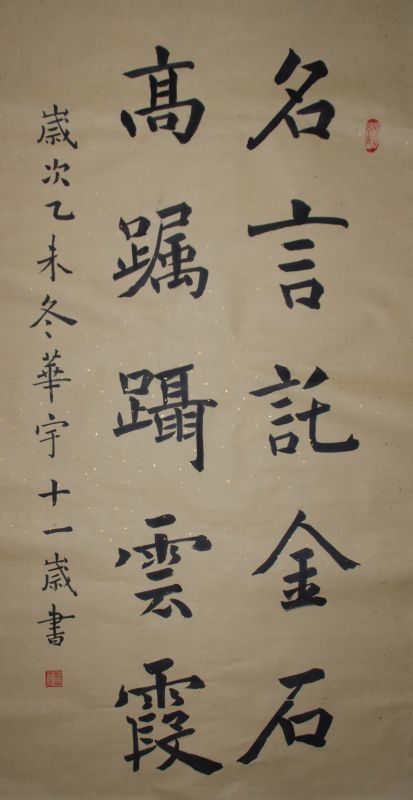 名言託金石
高躅躡雲霞
歲次乙未冬華宇十一歲書